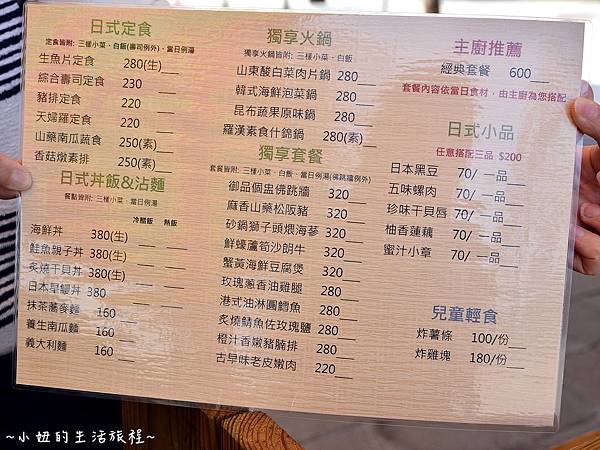 日式定食
定食皆附: 三種小菜、白飯(壽司例外)、當日例湯
生魚片定食 280(生)
綜合壽司定食 230
豬排定食 220
天婦羅定食 220
山藥南瓜蔬食 250(素)
香菇燉素排 250(素)
日式丼飯&沾麵
餐點皆附: 三種小菜、當日例湯
冷醋飯 熱飯
海鮮丼 380(生)
鮭魚親子丼 380(生)
炙燒干貝丼 380(生)
日本旱鰻丼 380
抹茶蕎麥麵 160
養生南瓜麵 160
義大利麵 160
獨享火鍋
獨享火鍋皆附: 三種小菜、白飯
山東酸白菜肉片鍋 280
韓式海鮮泡菜鍋 280
昆布蔬果原味鍋 280
羅漢素食什錦鍋 280(素)
獨享套餐
套餐皆附: 三種小菜、白飯、當日例湯(佛跳牆例外)
御品個盅佛跳牆 320
麻香山藥松阪豬 320
砂鍋獅子頭煨海蔘 320
鮮蠔蘆筍沙朗牛 320
蟹黃海鮮豆腐煲 320
玫瑰蔥香油雞腿 280
港式油淋圓鱈魚 280
炙燒鯖魚佐玫瑰鹽 280
橙汁香嫩豬腩排 280
古早味老皮嫩肉 220
主廚推薦
經典套餐 600
套餐內容依當日食材,由主廚為您搭配
日式小品
任意搭配三品 $200
日本黑豆 70/一品
五味螺肉 70/一品
珍味干貝唇 70/一品
柚香蓮藕 70/一品
蜜汁小章 70/一品
兒童輕食
炸薯條 100/份
炸雞塊 180/份
~小妞的生活旅程~